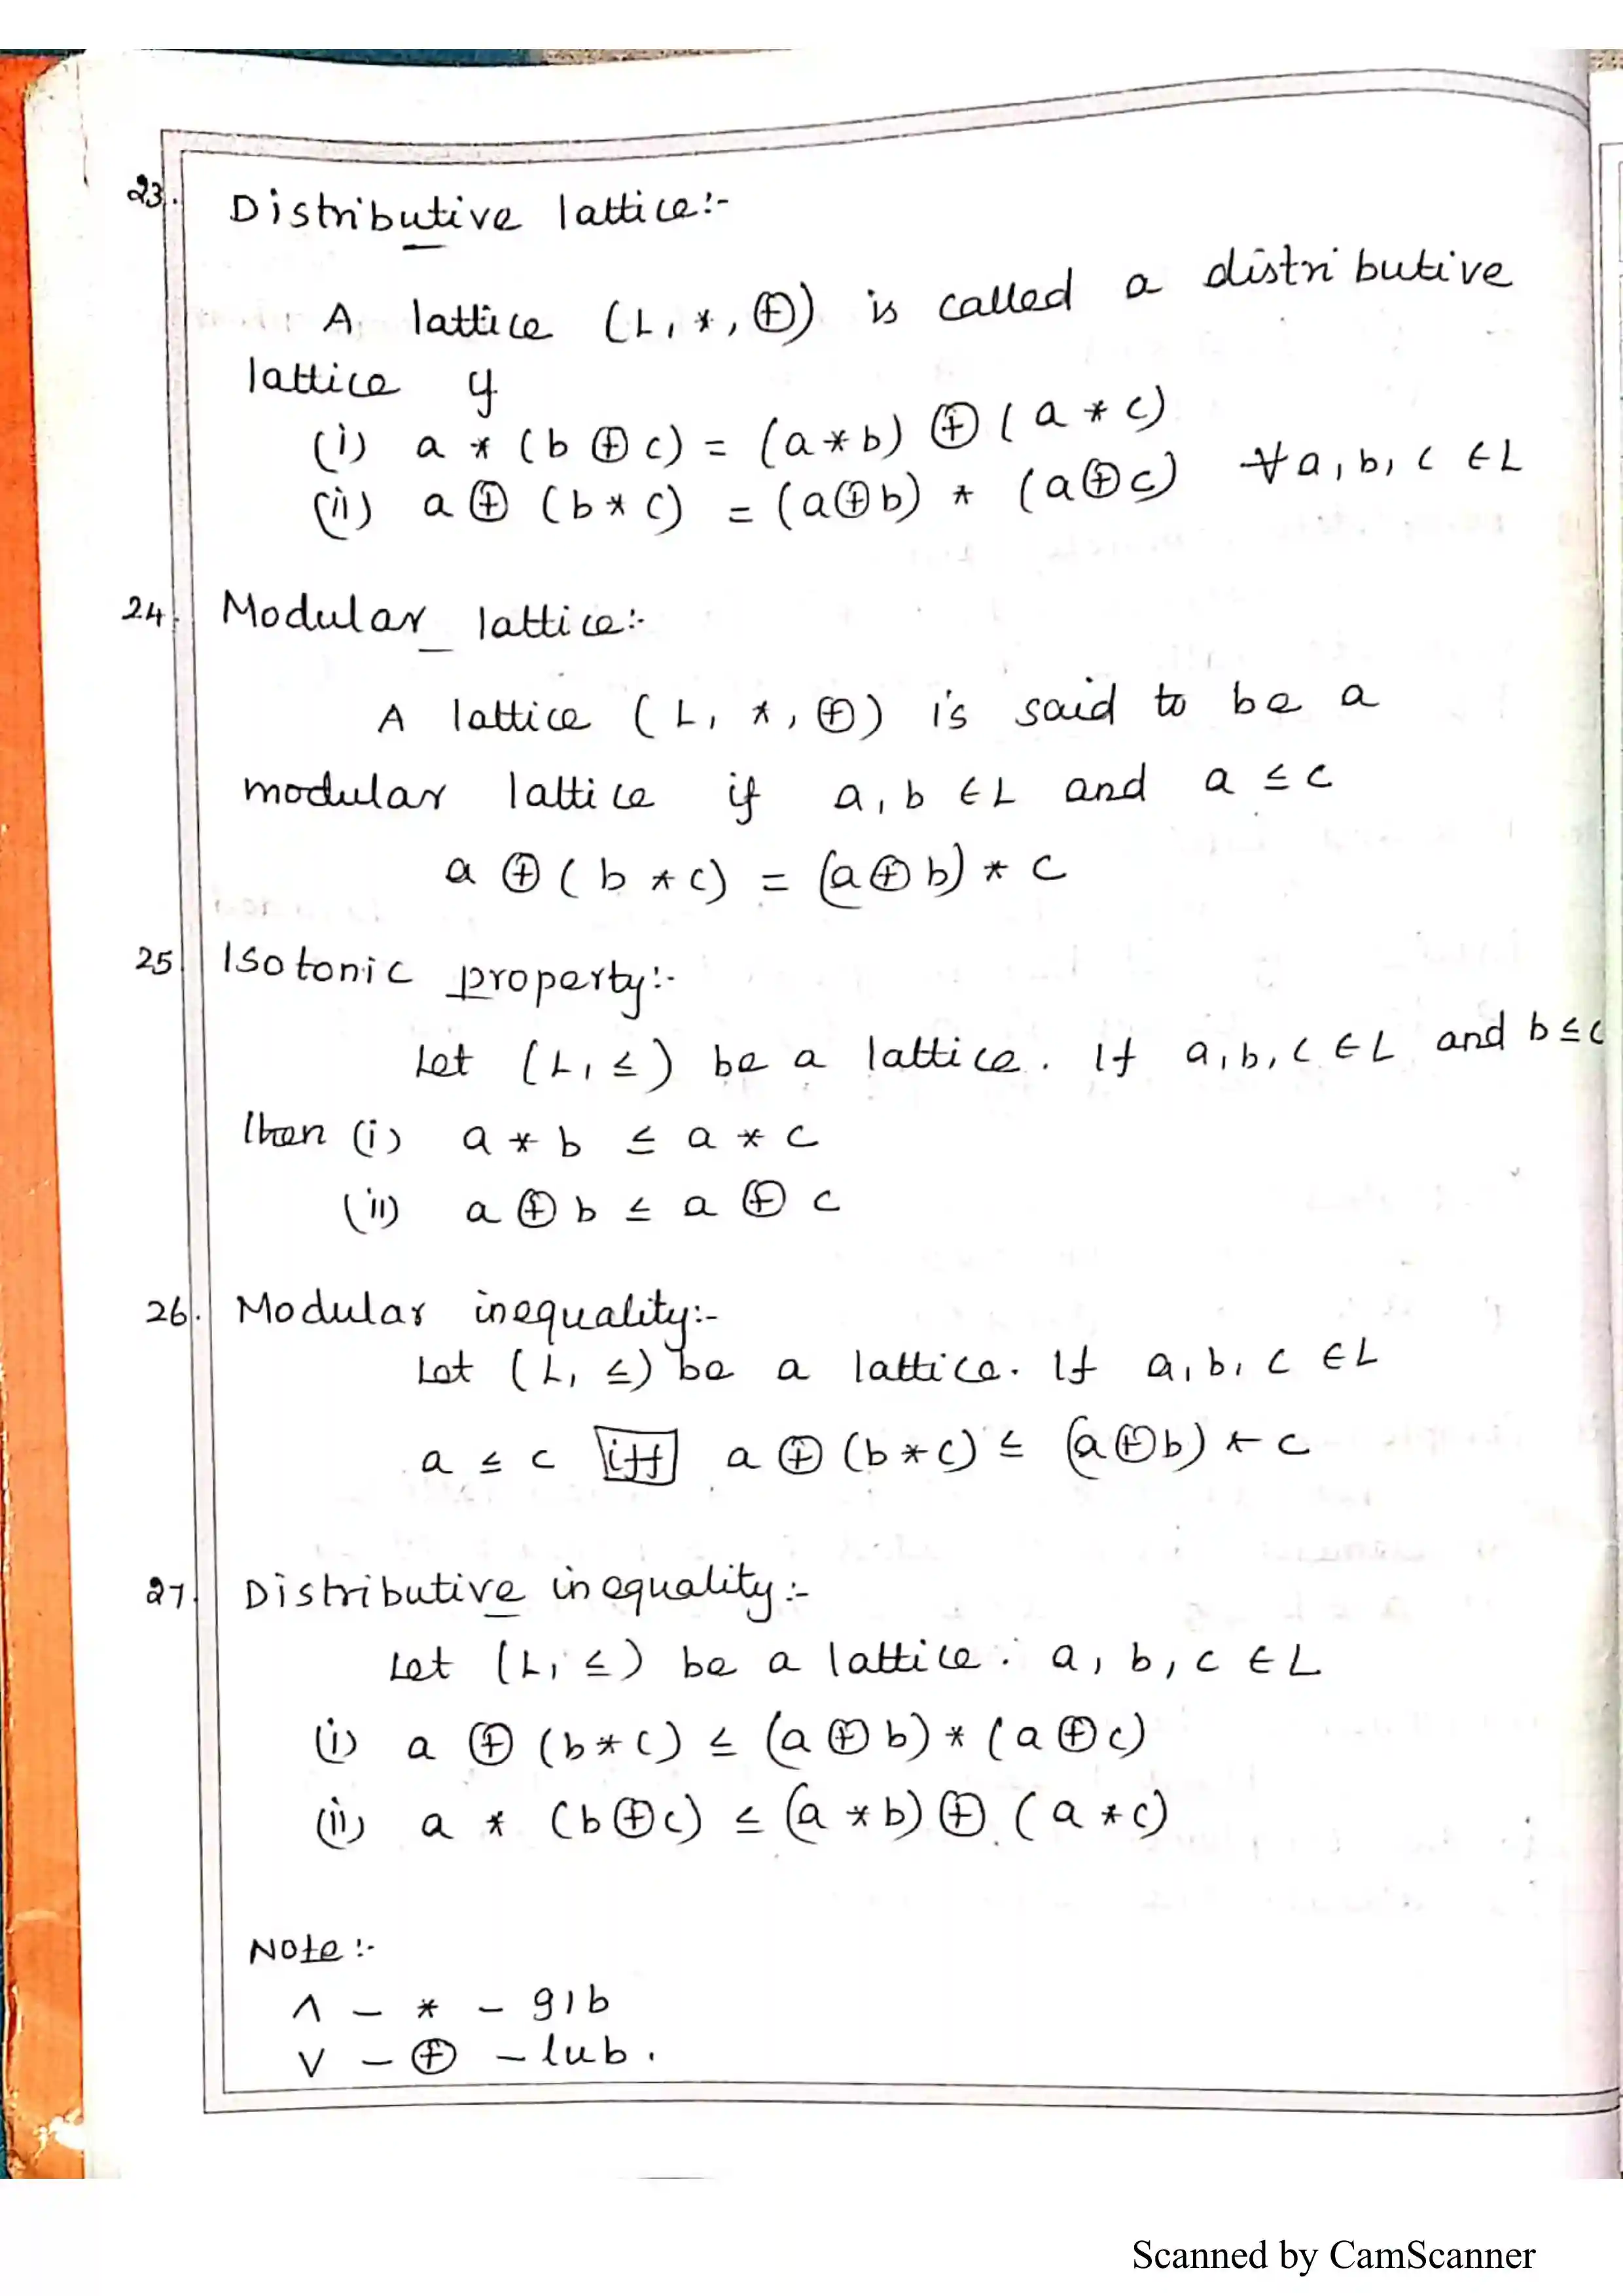 23. Distributive lattice:-
A lattice (L, *, ⊕) is called a distributive
lattice if
(i) a * (b ⊕ c) = (a * b) ⊕ (a * c)
(ii) a ⊕ (b * c) = (a ⊕ b) * (a ⊕ c) ∀ a, b, c ∈ L
24. Modular lattice:-
A lattice (L, *, ⊕) is said to be a
modular lattice if a, b ∈ L and a ≤ c
a ⊕ (b * c) = (a ⊕ b) * c
25. Isotonic property:-
Let (L, ≤) be a lattice. If a, b, c ∈ L and b ≤ c
then (i) a * b ≤ a * c
(ii) a ⊕ b ≤ a ⊕ c
26. Modular inequality:-
Let (L, ≤) be a lattice. If a, b, c ∈ L
a ≤ c iff a ⊕ (b * c) ≤ (a ⊕ b) * c
27. Distributive inequality:-
Let (L, ≤) be a lattice. a, b, c ∈ L
(i) a ⊕ (b * c) ≤ (a ⊕ b) * (a ⊕ c)
(ii) a * (b ⊕ c) ≤ (a * b) ⊕ (a * c)
Note:-
∧ - * - glb
∨ - ⊕ - lub.
Scanned by CamScanner